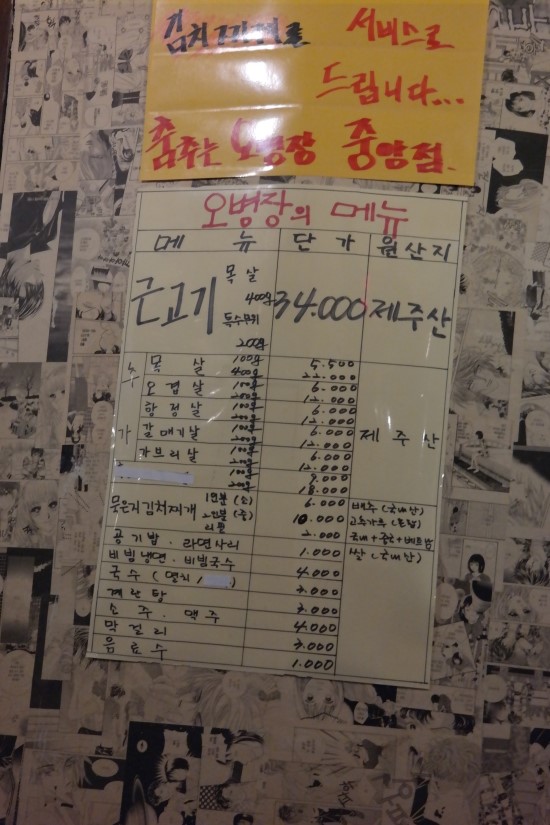 김치찌개를 서비스로
드립니다...
춤추는 오병장 중앙점.
오병장의 메뉴
메 뉴 단 가 원산지
근고기 목살 400g 특수부위 200g 34.000 제주산
추 목 살 100g 5.500
400g 22.000
오 겹 살 100g 6.000
200g 12.000
항 정 살 100g 6.000
200g 12.000
가 갈 매 기 살 100g 6.000
200g 12.000
제 주 산
가 브 리 살 100g 6.000
200g 12.000
100g 9.000
200g 18.000
묵은지김치찌개 1인분 (소) 6.000 배추 (국내산)
2인분 (중) 10.000 고추가루
2.000 국내+중국+베트남
공 기 밥 . 라면사리 1.000 쌀 (국내산)
비빔냉면 . 비빔국수 4.000
국 수 ( 멸치 / 3.000
계 란 탕 3.000
소 주 . 맥 주 4.000
막 걸 리 3.000
음 료 수 1.000